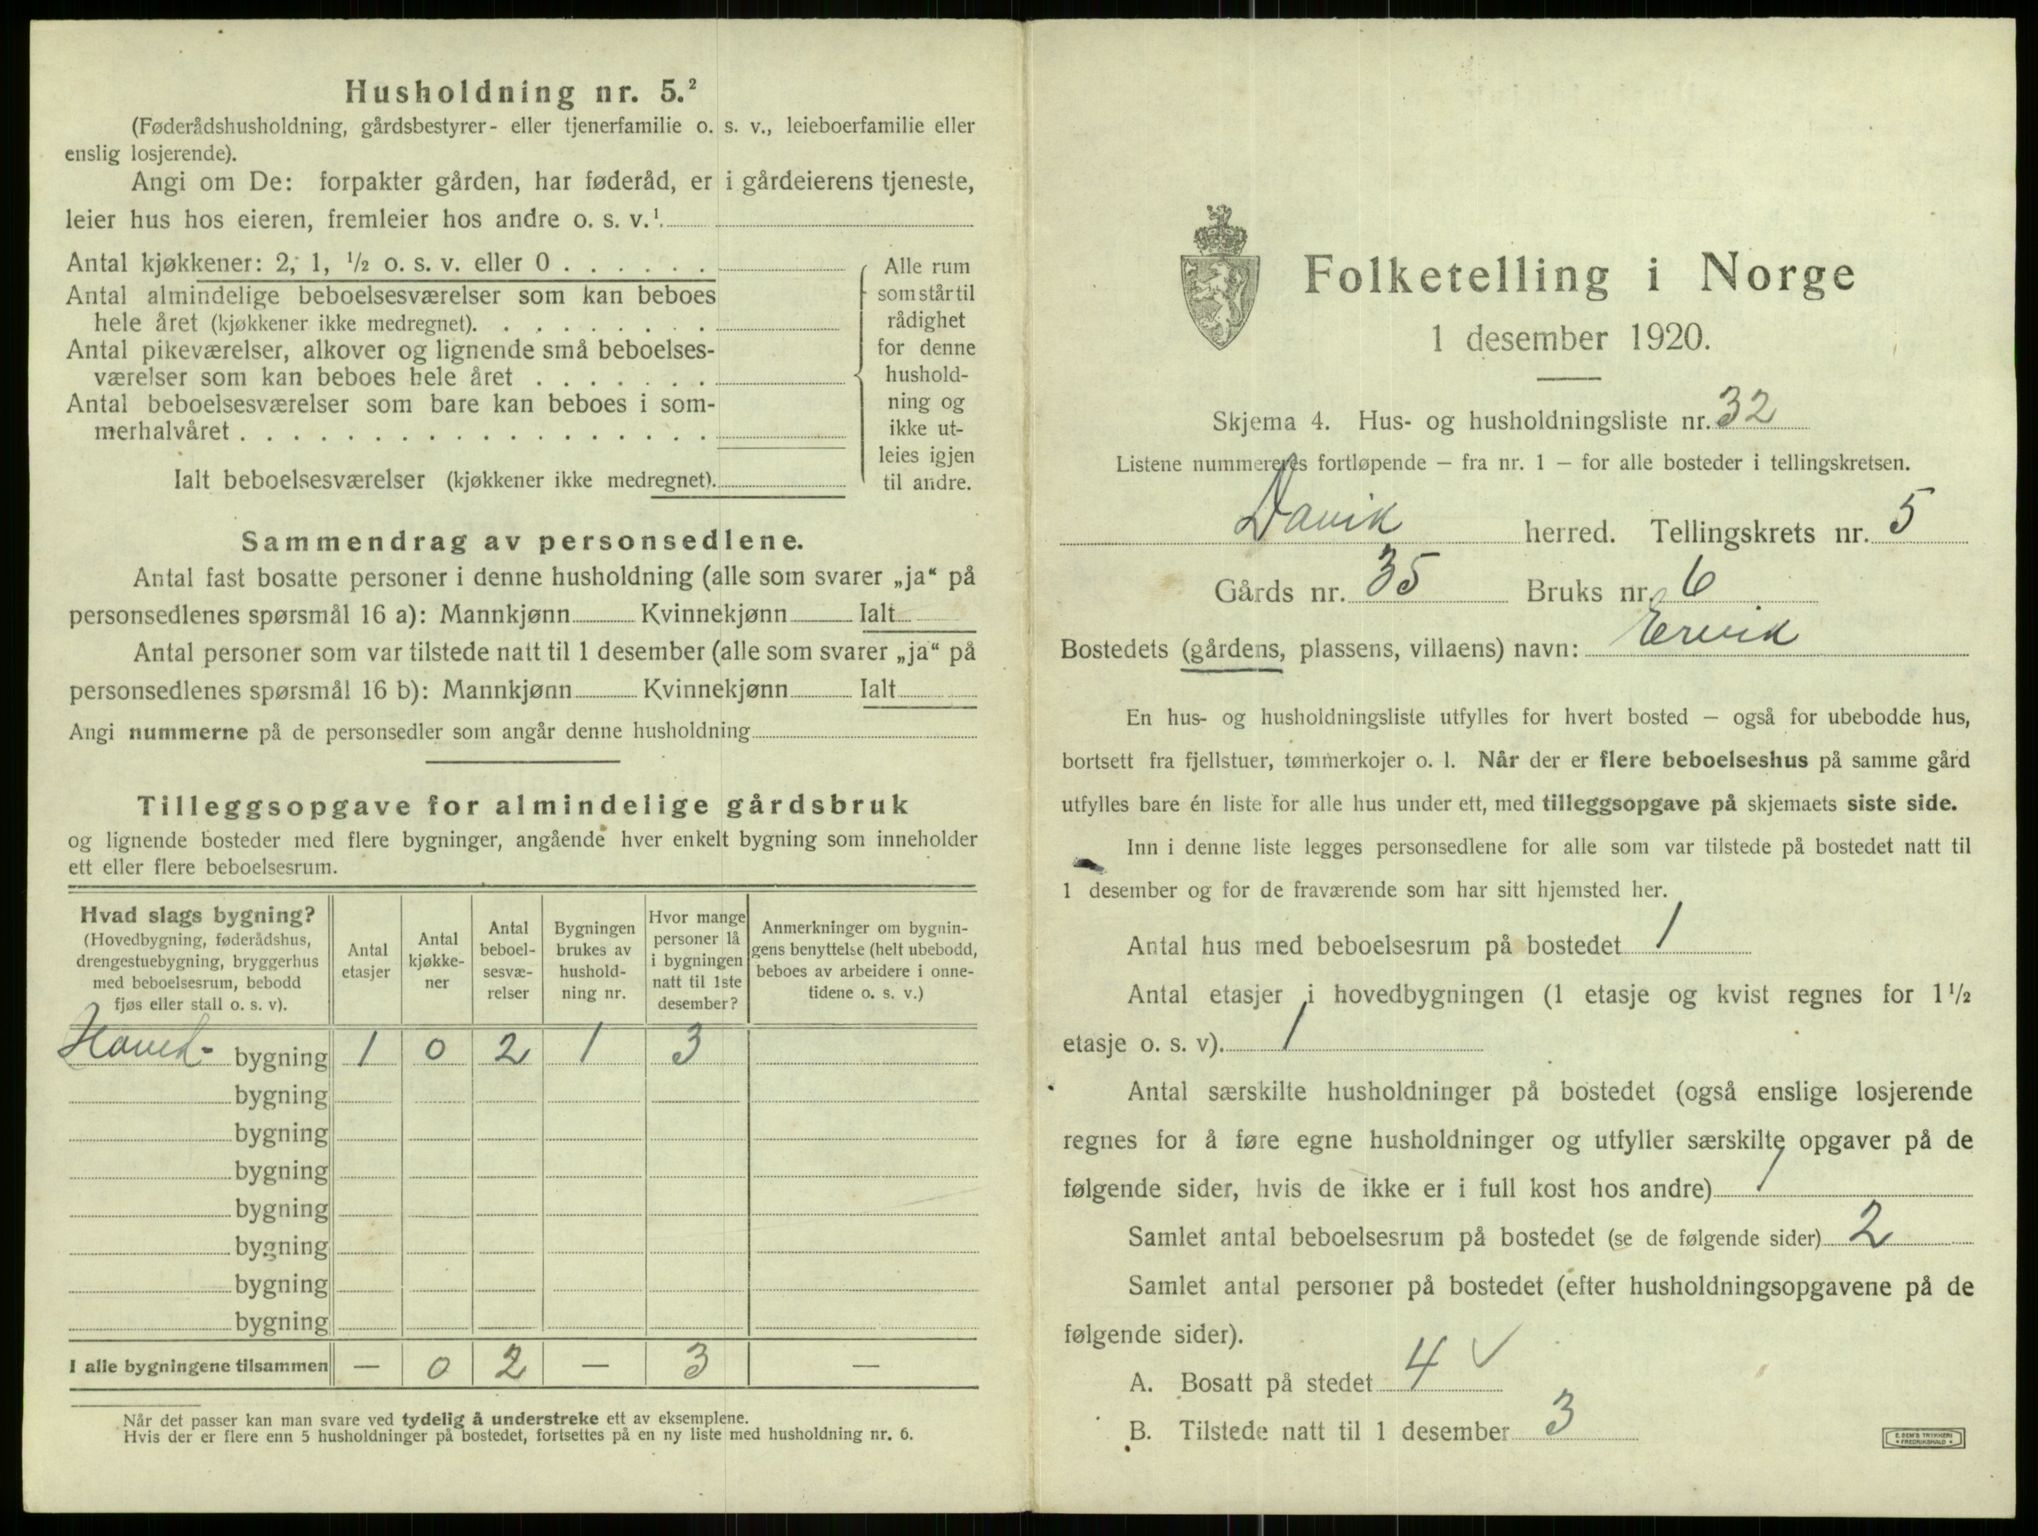 Husholdning nr. 5.²
(Føderådshusholdning, gårdsbestyrer- eller tjenerfamilie o. s. v., leieboerfamilie eller
enslig losjerende).
Angi om De: forpakter gården, har føderåd, er i gårdeierens tjeneste,
leier hus hos eieren, fremleier hos andre o. s. v.¹
Antal kjøkkener: 2, 1, ½ o. s. v. eller 0 . . . . . .
Antal almindelige beboelsesværelser som kan beboes
hele året (kjøkkener ikke medregnet). . . . . . . . .
Antal pikeværelser, alkover og lignende små beboelses-
værelser som kan beboes hele året . . . . . . .
Antal beboelsesværelser som bare kan beboes i som-
merhalvåret . . . . . . . . . . . . . . . . . .
Ialt beboelsesværelser (kjøkkener ikke medregnet).
Alle rum
som står til
rådighet
for denne
hushold-
ning og
ikke ut-
leies igjen
til andre.
Sammendrag av personsedlene.
Antal fast bosatte personer i denne husholdning (alle som svarer „ja“ på
personsedlenes spørsmål 16 a): Mannkjønn Kvinnekjønn Ialt
Antal personer som var tilstede natt til 1 desember (alle som svarer „ja“ på
personsedlenes spørsmål 16 b): Mannkjønn Kvinnekjønn Ialt
Angi nummerne på de personsedler som angår denne husholdning
Tilleggsopgave for almindelige gårdsbruk
og lignende bosteder med flere bygninger, angående hver enkelt bygning som inneholder
ett eller flere beboelsesrum.
Hvad slags bygning?
(Hovedbygning, føderådshus,
drengestuebygning, bryggerhus
med beboelsesrum, bebodd
fjøs eller stall o. s. v).
Antal
etasjer
Antal
kjøkke-
ner
Antal
beboel-
sesvæ-
relser
Bygningen
brukes av
hushold-
ning nr.
Hvor mange
personer lå
i bygningen
natt til 1ste
desember?
Anmerkninger om bygnin-
gens benyttelse (helt ubebodd,
beboes av arbeidere i onne-
tidene o. s. v.)
Hoved- bygning 1 0 2 1 3
bygning
bygning
bygning
bygning
bygning
bygning
bygning
I alle bygningene tilsammen — 0 2 — 3 —
Når det passer kan man svare ved tydelig å understreke ett av eksemplene.
Hvis der er flere enn 5 husholdninger på bostedet, fortsettes på en ny liste med husholdning nr. 6.
Folketelling i Norge
1 desember 1920.
Skjema 4. Hus- og husholdningsliste nr. 32
Listene nummereres fortløpende — fra nr. 1 — for alle bosteder i tellingskretsen.
Davik herred. Tellingskrets nr. 5
Gårds nr. 35 Bruks nr. 6
Bostedets (gårdens, plassens, villaens) navn: Ervik
En hus- og husholdningsliste utfylles for hvert bosted — også for ubebodde hus,
bortsett fra fjellstuer, tømmerkojer o. l. Når der er flere beboelseshus på samme gård
utfylles bare én liste for alle hus under ett, med tilleggsopgave på skjemaets siste side.
Inn i denne liste legges personsedlene for alle som var tilstede på bostedet natt til
1 desember og for de fraværende som har sitt hjemsted her.
Antal hus med beboelsesrum på bostedet 1
Antal etasjer i hovedbygningen (1 etasje og kvist regnes for 1½
etasje o. s. v). 1
Antal særskilte husholdninger på bostedet (også enslige losjerende
regnes for å føre egne husholdninger og utfyller særskilte opgaver på de
følgende sider, hvis de ikke er i full kost hos andre) 1
Samlet antal beboelsesrum på bostedet (se de følgende sider) 2
Samlet antal personer på bostedet (efter husholdningsopgavene på de
følgende sider).
A. Bosatt på stedet 4 ✓
B. Tilstede natt til 1 desember 3